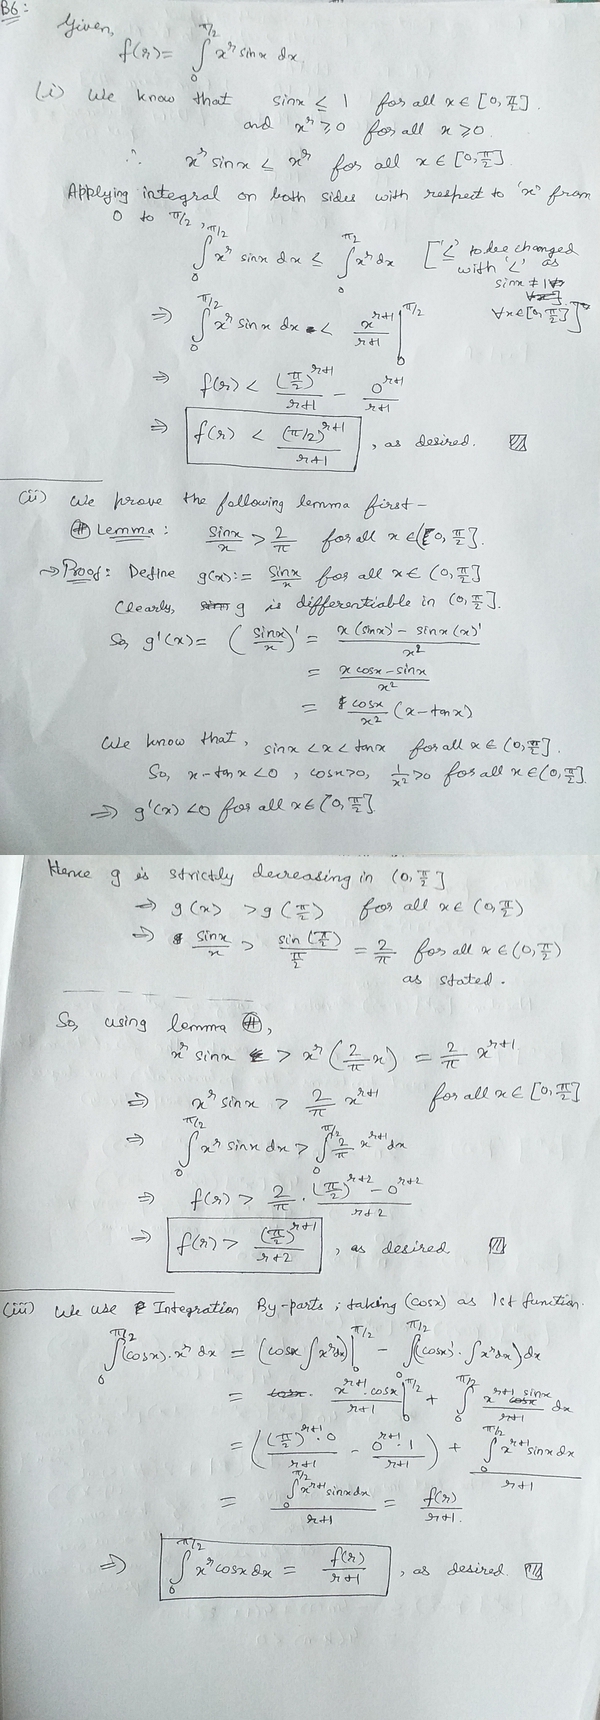 B6:
Given,
f(r) = ∫_0^{π/2} x^r sinx dx.
(i) We know that sinx ≤ 1 for all x ∈ [0, π/2].
and x^r ≥ 0 for all x ≥ 0.
∴ x^r sinx ≤ x^r for all x ∈ [0, π/2].
Applying integral on both sides with respect to 'x' from
0 to π/2,
∫_0^{π/2} x^r sinx dx ≤ ∫_0^{π/2} x^r dx ['≤' to be changed
with '<' as
sinx ≠ 1
∀x∈[0, π/2]]
⇒ ∫_0^{π/2} x^r sinx dx < x^{r+1}/(r+1) |_0^{π/2}
⇒ f(r) < (π/2)^{r+1}/(r+1) - 0^{r+1}/(r+1)
⇒ f(r) < (π/2)^{r+1}/(r+1), as desired.
(ii) We prove the following lemma first -
(#) Lemma: sinx/x > 2/π for all x ∈ (0, π/2].
→ Proof: Define g(x) := sinx/x for all x ∈ (0, π/2]
Clearly, g is differentiable in (0, π/2].
So, g'(x) = (sinx/x)' = (x(sinx)' - sinx(x)')/x^2
= (x cosx - sinx)/x^2
= cosx/x^2 (x - tanx)
We know that, sinx < x < tanx for all x ∈ (0, π/2].
So, x - tanx < 0, cosx > 0, 1/x^2 > 0 for all x ∈ (0, π/2].
⇒ g'(x) < 0 for all x ∈ (0, π/2].
Hence g is strictly decreasing in (0, π/2]
⇒ g(x) > g(π/2) for all x ∈ (0, π/2)
⇒ sinx/x > sin(π/2)/(π/2) = 2/π for all x ∈ (0, π/2)
as stated.
So, using lemma (#),
x^r sinx > x^r (2/π x) = 2/π x^{r+1}
⇒ x^r sinx > 2/π x^{r+1} for all x ∈ [0, π/2]
⇒ ∫_0^{π/2} x^r sinx dx > ∫_0^{π/2} 2/π x^{r+1} dx
⇒ f(r) > 2/π · ((π/2)^{r+2} - 0^{r+2})/(r+2)
⇒ f(r) > (π/2)^{r+1}/(r+2), as desired.
(iii) We use Integration By-parts; taking (cosx) as 1st function.
∫_0^{π/2} (cosx)·x^r dx = (cosx ∫x^r dx)|_0^{π/2} - ∫_0^{π/2} ((cosx)'·∫x^r dx) dx
= x^{r+1}·cosx/(r+1) |_0^{π/2} + ∫_0^{π/2} x^{r+1} sinx/(r+1) dx
= ((π/2)^{r+1}·0/(r+1) - 0^{r+1}·1/(r+1)) + ∫_0^{π/2} x^{r+1} sinx dx/(r+1)
= ∫_0^{π/2} x^{r+1} sinx dx/(r+1) = f(r)/(r+1).
⇒ ∫_0^{π/2} x^r cosx dx = f(r)/(r+1), as desired.